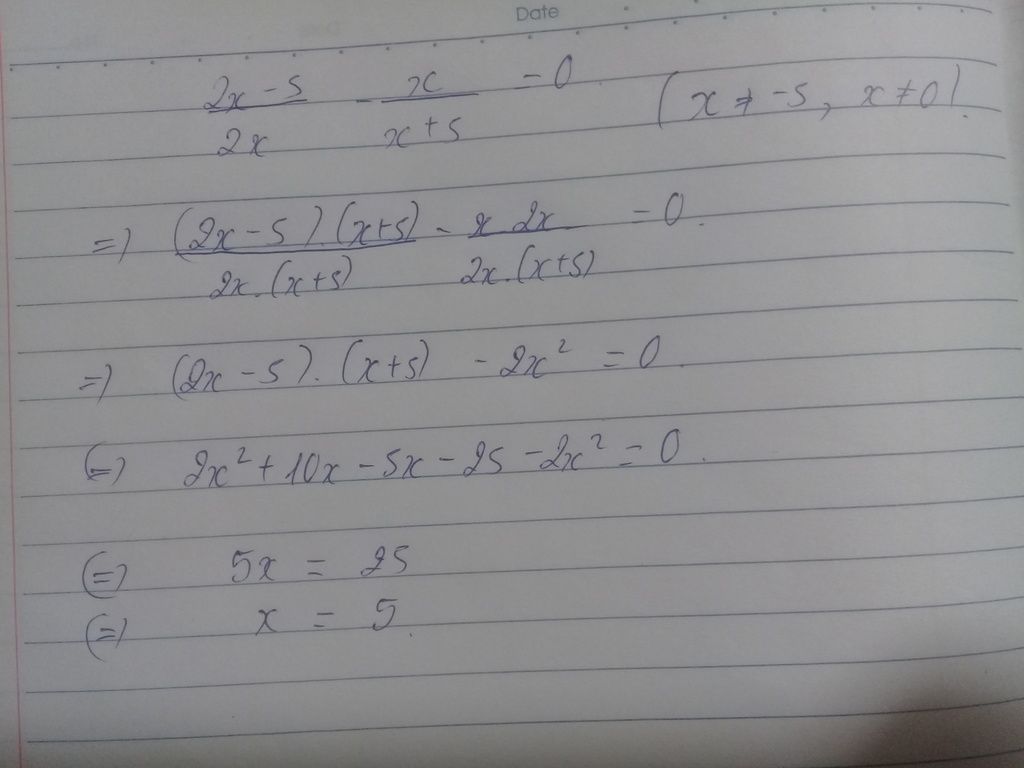 Date
(2x-5)/(2x) - x/(x+5) = 0 (x ≠ -5, x ≠ 0).
=) ((2x-5).(x+5))/(2x.(x+5)) - (x.2x)/(2x.(x+5)) = 0.
=) (2x-5).(x+5) - 2x² = 0.
(=) 2x² + 10x - 5x - 25 - 2x² = 0.
(=) 5x = 25
(=) x = 5.